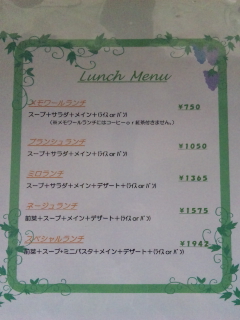 Lunch Menu
メモワールランチ ¥750
スープ+サラダ+メイン+(ライス or パン)
(※メモワールランチにはコーヒー or 紅茶付きません。)
ブランシュランチ ¥1050
スープ+サラダ+メイン+(ライス or パン)
ミロランチ ¥1365
スープ+サラダ+メイン+デザート+(ライス or パン)
ネージュランチ ¥1575
前菜+スープ+メイン+デザート+(ライス or パン)
スペシャルランチ ¥1942
前菜+スープ+ミニパスタ+メイン+デザート+(ライス or パン)